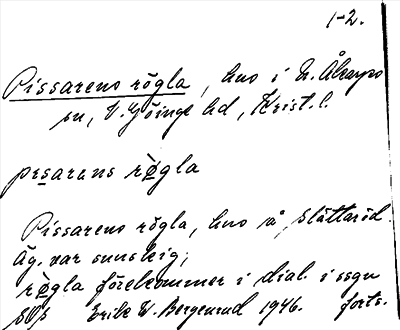 1-2.
Pissarens rögla, hus i N. Åkarps
sn, V. Göinge hd, Krist. l.
pɪsarans røgla
Pissarens rögla, hus å Slättaröd.
Äg. var snuskig;
røgla förekommer i dial. i ssgn
Erik W. Bergenrud 1946. forts.